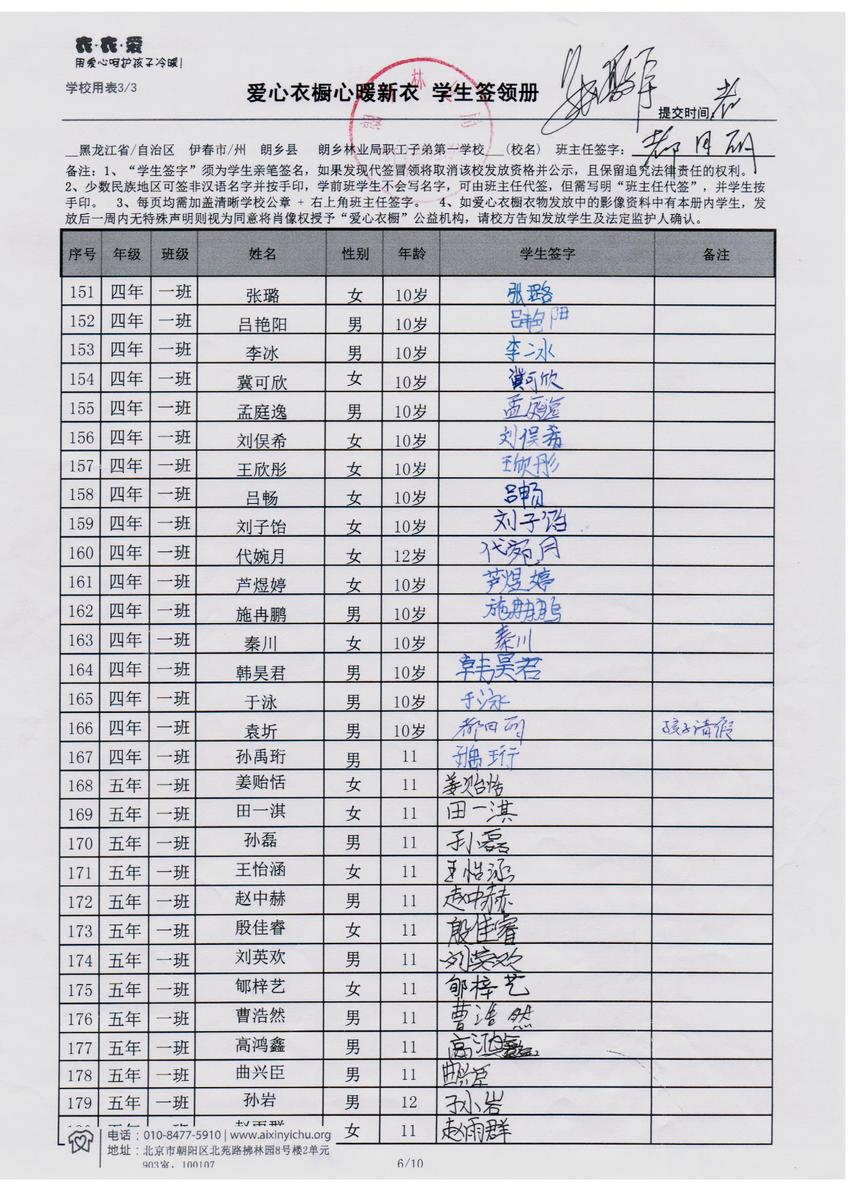 衣·衣·爱
用爱心呵护孩子冷暖!
学校用表3/3
爱心衣橱心暖新衣 学生签领册
提交时间
__黑龙江省/自治区 伊春市/州 朗乡县 朗乡林业局职工子弟第一学校___(校名) 班主任签字:
备注:1、“学生签字”须为学生亲笔签名,如果发现代签冒领将取消该校发放资格并公示,且保留追究法律责任的权利。
2、少数民族地区可签非汉语名字并按手印,学前班学生不会写名字,可由班主任代签,但需写明“班主任代签”,并学生按
手印。 3、每页均需加盖清晰学校公章 + 右上角班主任签字。 4、如爱心衣橱衣物发放中的影像资料中有本册内学生,发
放后一周内无特殊声明则视为同意将肖像权授予“爱心衣橱”公益机构,请校方告知发放学生及法定监护人确认。
序号 年级 班级 姓名 性别 年龄 学生签字 备注
151 四年 一班 张璐 女 10岁 张璐
152 四年 一班 吕艳阳 男 10岁 吕艳阳
153 四年 一班 李冰 男 10岁 李冰
154 四年 一班 冀可欣 女 10岁 冀可欣
155 四年 一班 孟庭逸 男 10岁 孟庭逸
156 四年 一班 刘俣希 女 10岁 刘俣希
157 四年 一班 王欣彤 女 10岁 王欣彤
158 四年 一班 吕畅 女 10岁 吕畅
159 四年 一班 刘子饴 女 10岁 刘子饴
160 四年 一班 代婉月 女 12岁 代婉月
161 四年 一班 芦煜婷 女 10岁 芦煜婷
162 四年 一班 施冉鹏 男 10岁 施冉鹏
163 四年 一班 秦川 女 10岁 秦川
164 四年 一班 韩昊君 男 10岁 韩昊君
165 四年 一班 于泳 男 10岁 于泳
166 四年 一班 袁圻 男 10岁 孩子请假
167 四年 一班 孙禹珩 男 11 孙禹珩
168 五年 一班 姜贻恬 女 11 姜贻恬
169 五年 一班 田一淇 女 11 田一淇
170 五年 一班 孙磊 男 11 孙磊
171 五年 一班 王怡涵 女 11 王怡涵
172 五年 一班 赵中赫 男 11 赵中赫
173 五年 一班 殷佳睿 女 11 殷佳睿
174 五年 一班 刘英欢 男 11 刘英欢
175 五年 一班 郇梓艺 女 11 郇梓艺
176 五年 一班 曹浩然 男 11 曹浩然
177 五年 一班 高鸿鑫 男 11 高鸿鑫
178 五年 一班 曲兴臣 男 11 曲兴臣
179 五年 一班 孙岩 男 12 孙岩
女 11 赵雨群
电话:010-8477-5910 | www.aixinyichu.org
地址:北京市朝阳区北苑路拂林园8号楼2单元
903室, 100107
6/10